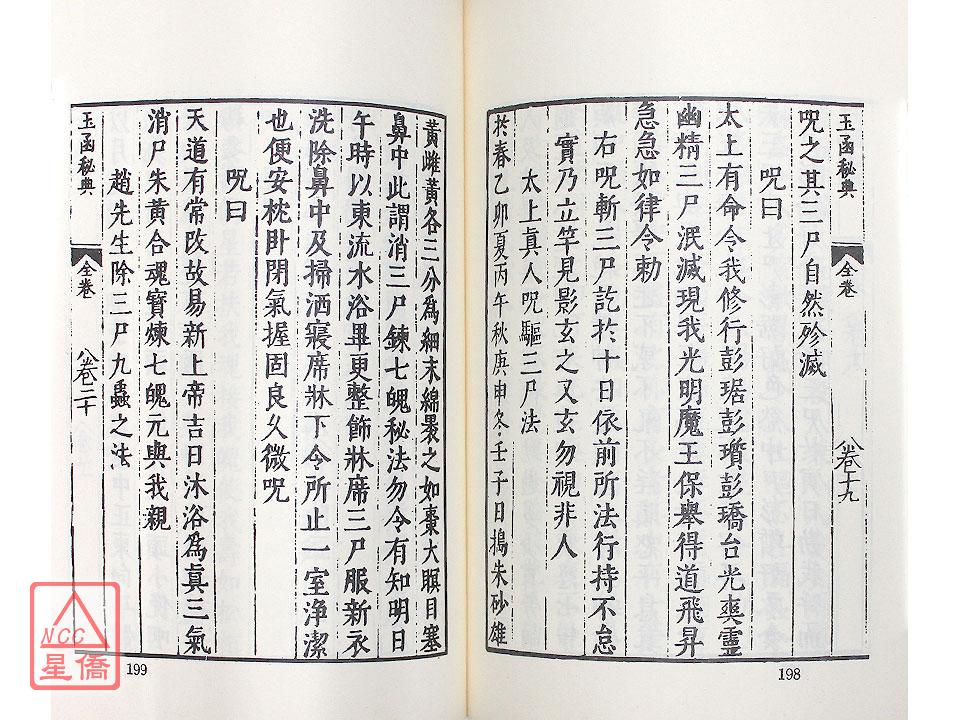 玉函秘典
全卷
卷十九
咒之其三尸自然殄滅
咒曰
太上有命令我修行彭琚彭瓚彭璚台光爽靈
幽精三尸泯滅現我光明魔王保舉得道飛昇
急急如律令勅
右咒斬三尸訖於十日依前所法行持不怠
實乃立竿見影玄之又玄勿視非人
太上眞人咒驅三尸法
於春乙卯夏丙午秋庚申冬壬子日搗朱砂雄
198
黃雌黃各三分爲細末綿裹之如棗大瞑目塞
鼻中此謂消三尸鍊七魄秘法勿令有知明日
午時以東流水浴畢更整飾牀席三尸服新衣
洗除鼻中及掃洒寢席牀下令所止一室浄潔
也便安枕卧閉氣握固良久微咒
咒曰
天道有常改故易新上帝吉日沐浴爲眞三氣
消尸朱黃合魂寶煉七魄元與我親
趙先生除三尸九蟲之法
玉函秘典
全卷
卷二十
199
NCC
星僑